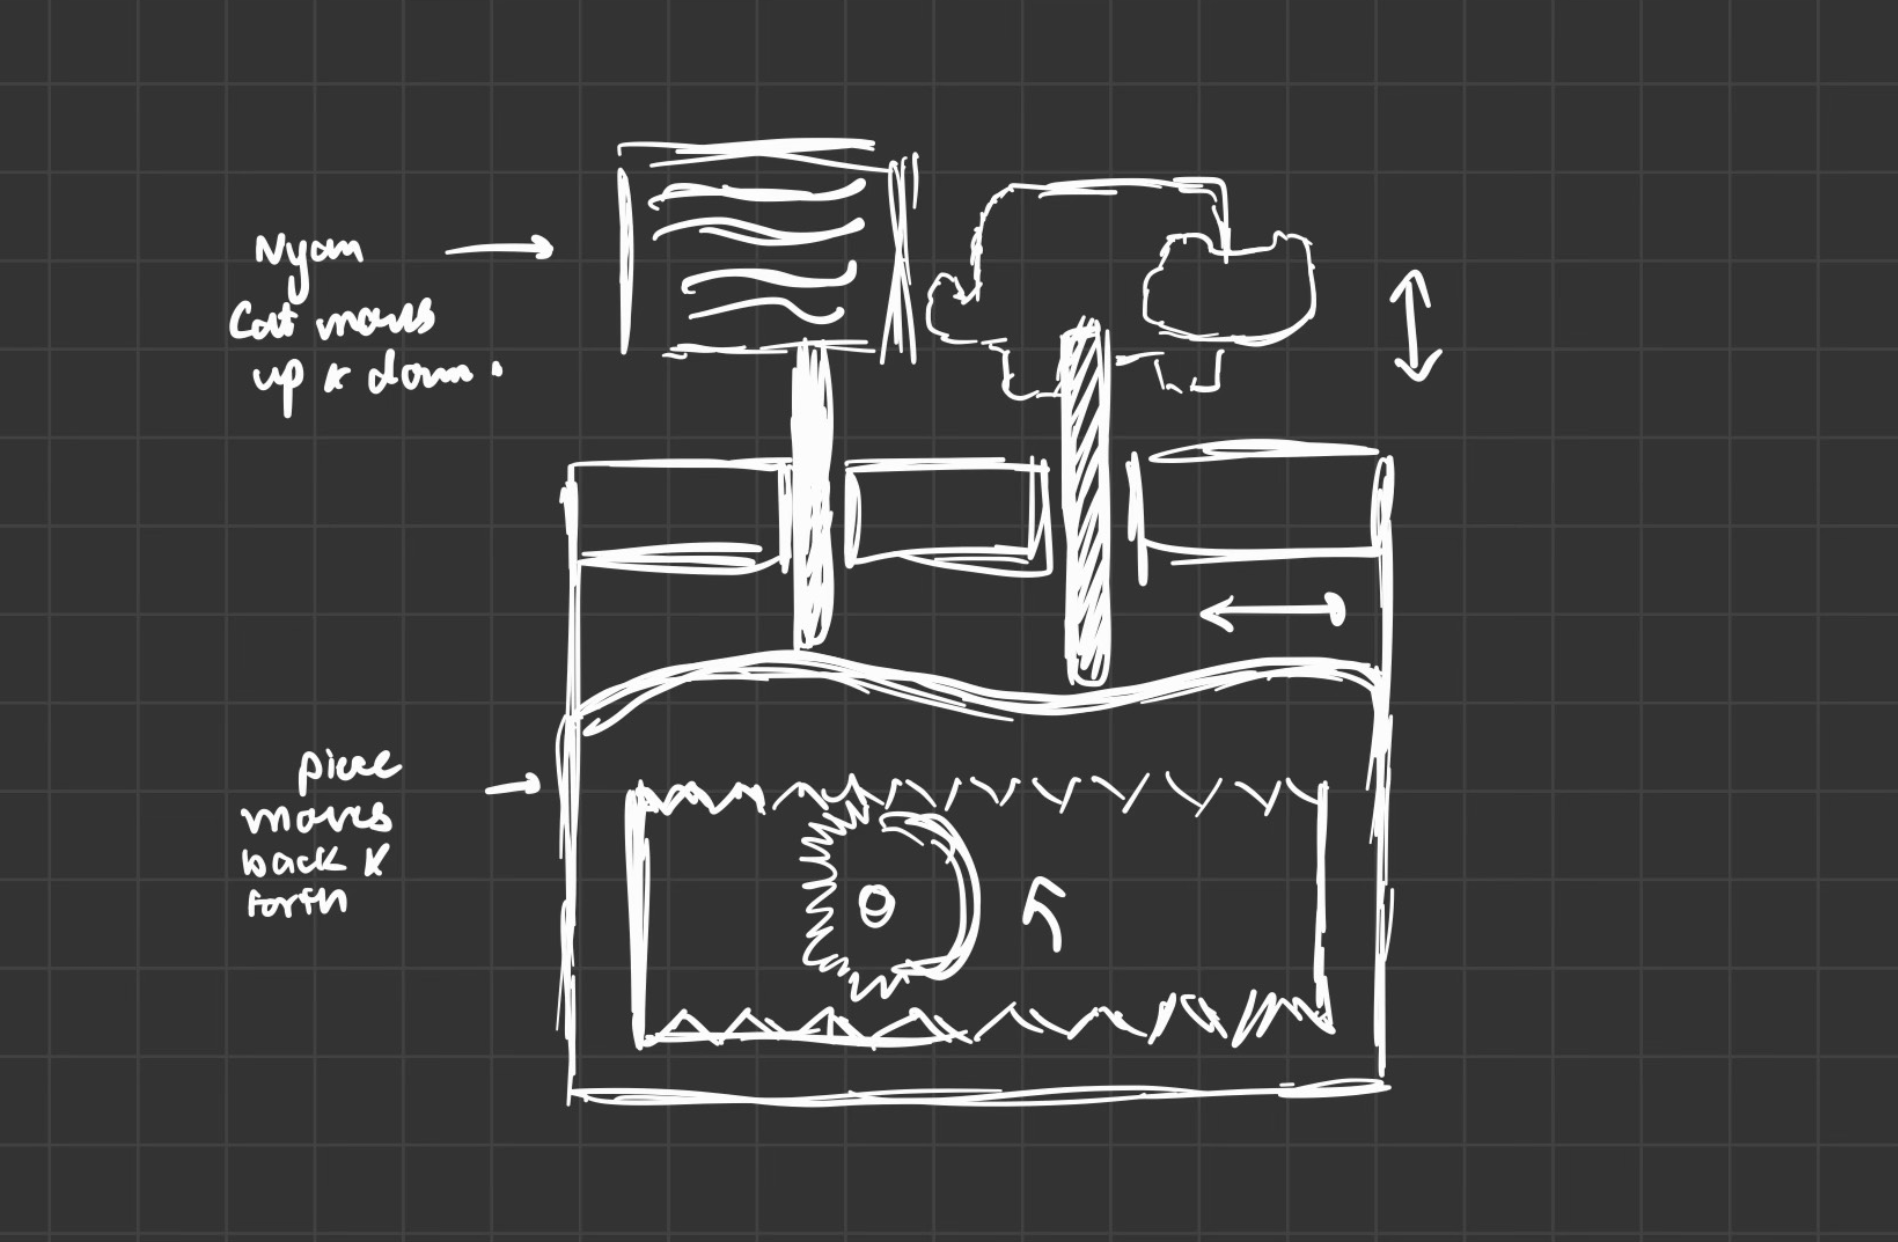 Nyan
Cat moves
up & down.
piece
moves
back &
forth